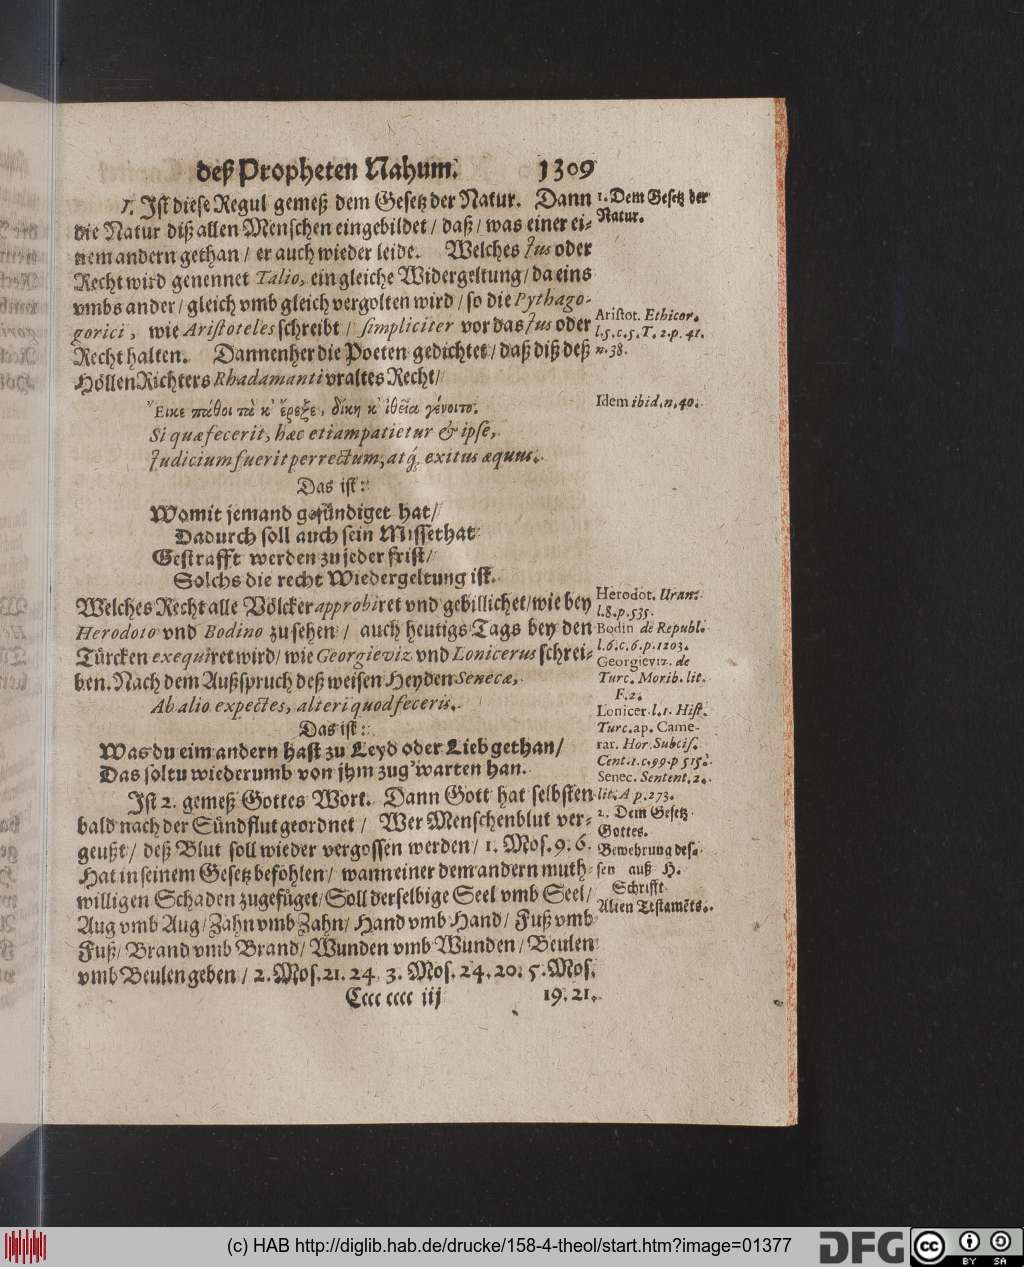 deß Propheten Nahum. 1309
1. Ist diese Regul gemeß dem Gesetz der Natur. Dann
die Natur diß allen Menschen eingebildet / daß / was einer ei-
nem andern gethan / er auch wieder leide. Welches Jus oder
Recht wird genennet Talio, ein gleiche Widergeltung / da eins
vmbs ander / gleich vmb gleich vergolten wird / so die Pythago-
gorici, wie Aristoteles schreibt / simpliciter vor das Jus oder
Recht halten. Dannenher die Poeten gedichtet / daß diß deß
HöllenRichters Rhadamanti vraltes Recht /
Εἴκε πάθοι τὰ κ' ἔρεξε, δίκη κ' ἰθεῖα γένοιτο.
Si quæ fecerit, hæc etiam patietur & ipse,
Judicium fuerit perrectum, atq; exitus æquus.
Das ist:
Womit jemand gesündiget hat /
Dadurch soll auch sein Missethat
Gestrafft werden zu jeder frist /
Solchs die recht Wiedergeltung ist.
Welches Recht alle Völcker approbiret vnd gebillichet / wie bey
Herodoto vnd Bodino zu sehen / auch heutigs Tags bey den
Türcken exequiret wird / wie Georgieviz vnd Lonicerus schrei-
ben. Nach dem Außspruch deß weisen Heyden Senecæ,
Ab alio expectes, alteri quod feceris.
Das ist:
Was du eim andern hast zu Leyd oder Lieb gethan /
Das soltu wiederumb von jhm zug'warten han.
Ist 2. gemeß Gottes Wort. Dann Gott hat selbsten
bald nach der Sündflut geordnet / Wer Menschenblut ver-
geußt / deß Blut soll wieder vergossen werden / 1. Mos. 9. 6.
Hat in seinem Gesetz befohlen / wann einer dem andern muth-
willigen Schaden zugefüget / Soll derselbige Seel vmb Seel /
Aug vmb Aug / Zahn vmb Zahn / Hand vmb Hand / Fuß vmb
Fuß / Brand vmb Brand / Wunden vmb Wunden / Beulen
vmb Beulen geben / 2. Mos. 21. 24. 3. Mos. 24. 20. 5. Mos.
Cccc cccc iij 19. 21.
1. Dem Gesetz der
Natur.
Aristot. Ethicor.
l. 5. c. 5. T. 2. p. 41.
n. 38.
Idem ibid. n. 40.
Herodot. Uran.
l. 8. p. 535.
Bodin de Republ.
l. 6. c. 6. p. 1203.
Georgieviz. de
Turc. Morib. lit.
F. 2.
Lonicer. l. 1. Hist.
Turc. ap. Came-
rar. Hor. Subcis.
Cent. 1. c. 99. p 515.
Senec. Sentent. 2.
lit. A p. 273.
2. Dem Gesetz
Gottes.
Bewehrung des-
sen auß H.
Schrifft
Alten Testamēts.
(c) HAB http://diglib.hab.de/drucke/158-4-theol/start.htm?image=01377
DFG
cc
BY SA